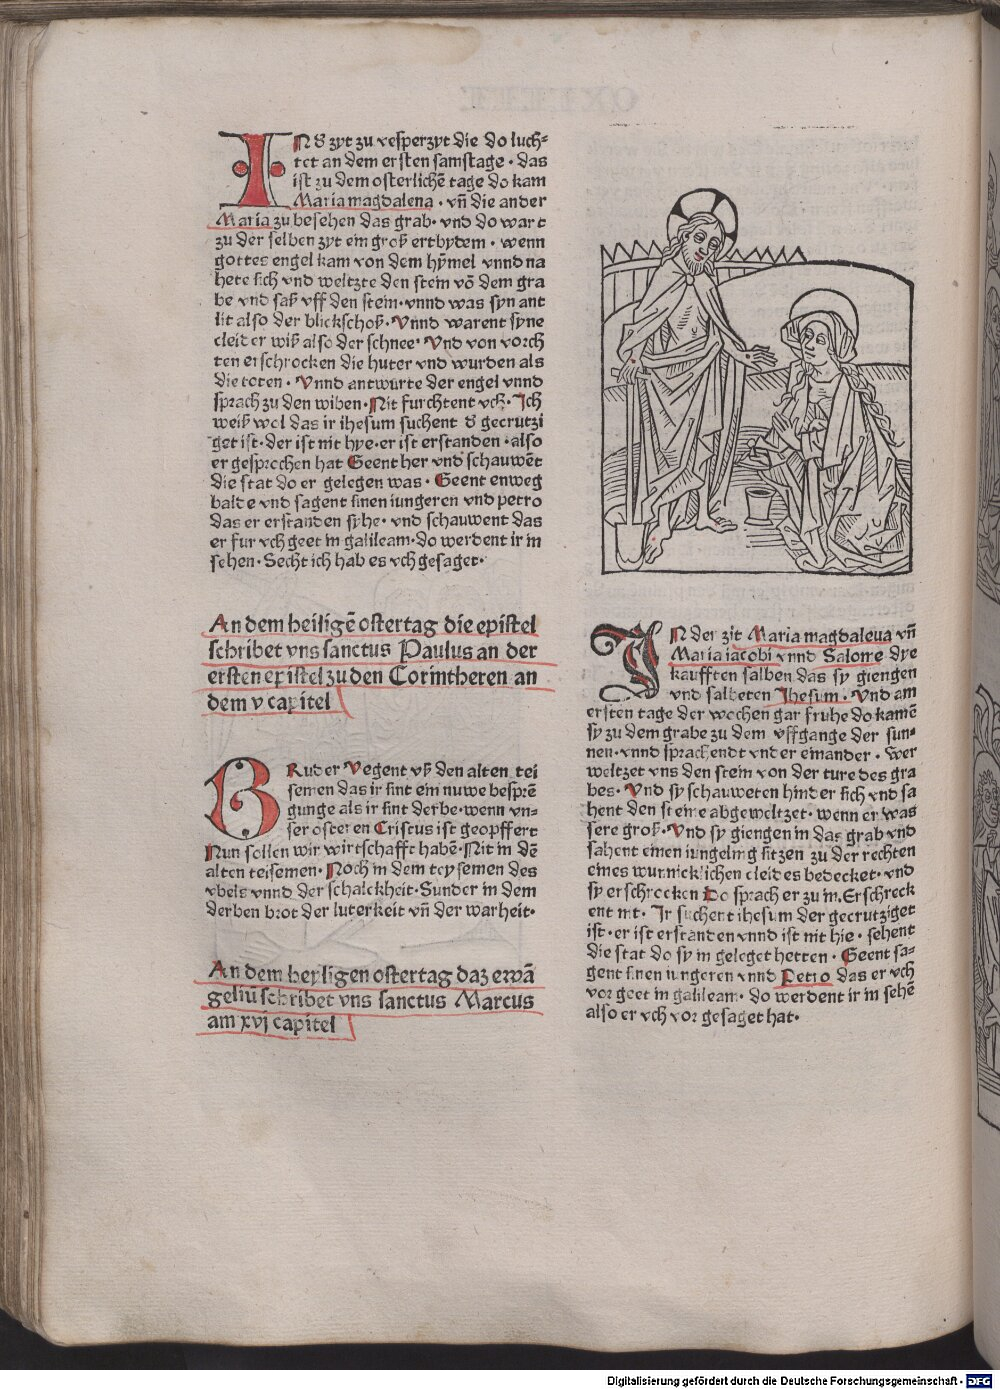 IN d᷑ zyt zu vesperzyt die do luch⸗
tet an dem ersten samstage · das
ist zu dem osterlichē tage do kam
Maria magdalena · vn̄ die ander
Maria zu besehen das grab · vnd do wart
zu der selben zyt ein groß ertbydem · wenn
gottes engel kam von dem hȳmel vnnd na
hete sich vnd weltzte den stein vō dem gra
be vnd saß vff den stein · vnnd was syn ant
lit also der blickschoß · Vnnd warent syne
cleider wiß also der schnee · Vnd von vorch
ten erschrocken die huter vnd wurden als
die toten · Vnnd antwurte der engel vnnd
sprach zu den wiben · Nit furchtent vch · Ich
weiß wol das ir ihesum suchent d᷑ gecrutzi
get ist · der ist nit hye · er ist erstanden · also
er gesprochen hat Geent her vnd schauwēt
die stat do er gelegen was · Geent enweg
balde vnd sagent sinen iungeren vnd petro
das er erstanden syhe · vnd schauwent das
er fur vch geet in galileam · do werdent ir in
sehen · Secht ich hab es vch gesaget ·
An dem heiligē ostertag die epistel
schribet vns sanctus Paulus an der
ersten epistel zu den Corintheren an
dem v capitel
BRuder Vegent vß den alten tei
semen das ir sint ein nuwe besprē
gunge als ir sint derbe · wenn vn⸗
ser osteren Cristus ist geopffert
Nun sollen wir wirtschafft habē · Nit in dē
alten teisemen · Noch in dem teysemen des
vbels vnnd der schalckheit · Sunder in dem
derben brot der luterkeit vn̄ der warheit ·
An dem heyligen ostertag daz ewā
geliū schribet vns sanctus Marcus
am xvj capitel
IN der zit Maria magdaleua vn̄
Maria iacobi vnnd Salome dye
kaufften salben das sy giengen
vnd salbeten Jhesum · Vnd am
ersten tage der wochen gar fruhe do kamē
sy zu dem grabe zu dem vffgange der sun⸗
nen · vnnd sprachendt vnder einander · Wer
weltzet vns den stein von der ture des gra
bes · Vnd sy schauweten hinder sich vnd sa
hent den steine abgeweltzet · wenn er was
sere groß · Vnd sy giengen in das grab vnd
sahent einen iungeling sitzen zu der rechten
eines wurnicklichen cleides bedecket · vnd
sy erschrocken Do sprach er zu in. Erschreck
ent nit · Ir suchent ihesum der gecrutziget
ist · er ist erstanden vnnd ist nit hie · sehent
die stat do sy in geleget hetten · Geent sa⸗
gent sinen iungeren vnnd Petro das er vch
vor geet in galileam · do werdent ir in sehē
also er vch vor gesaget hat ·
Digitalisierung gefördert durch die Deutsche Forschungsgemeinschaft - DFG